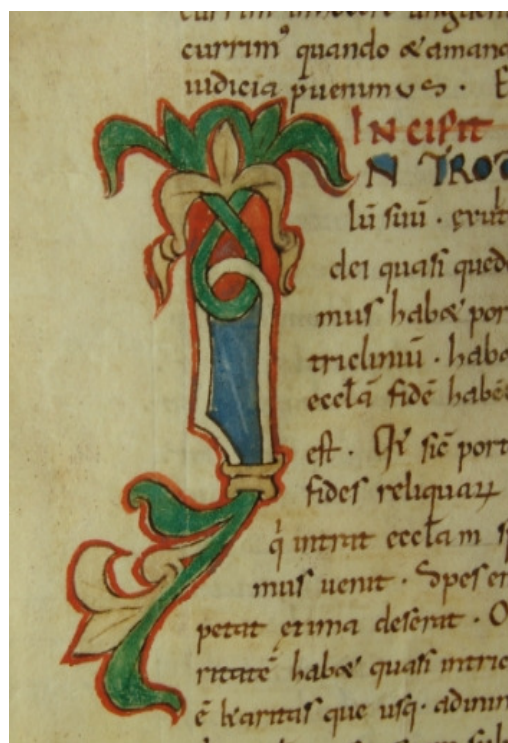 currim⁹ quando & amand
iudicia p̄uenimus . E
INCIPIT
N TROD
lū suū . erut
dei quasi qued
mus hab& por
tricliniū . hab
eccl̄ā fidē habē
est . Q sic̄ port
fides reliquaꝝ
intrat eccl̄am sp
mus uenit . Spes en
petat deserat . O
ritatē hab& quasi intric
ē karitas que usq . adinin